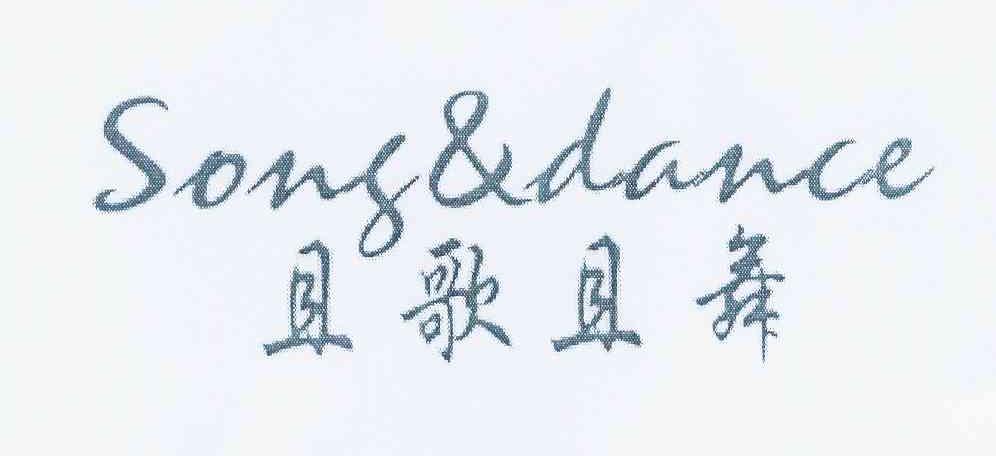 Song&dance
且歌且舞